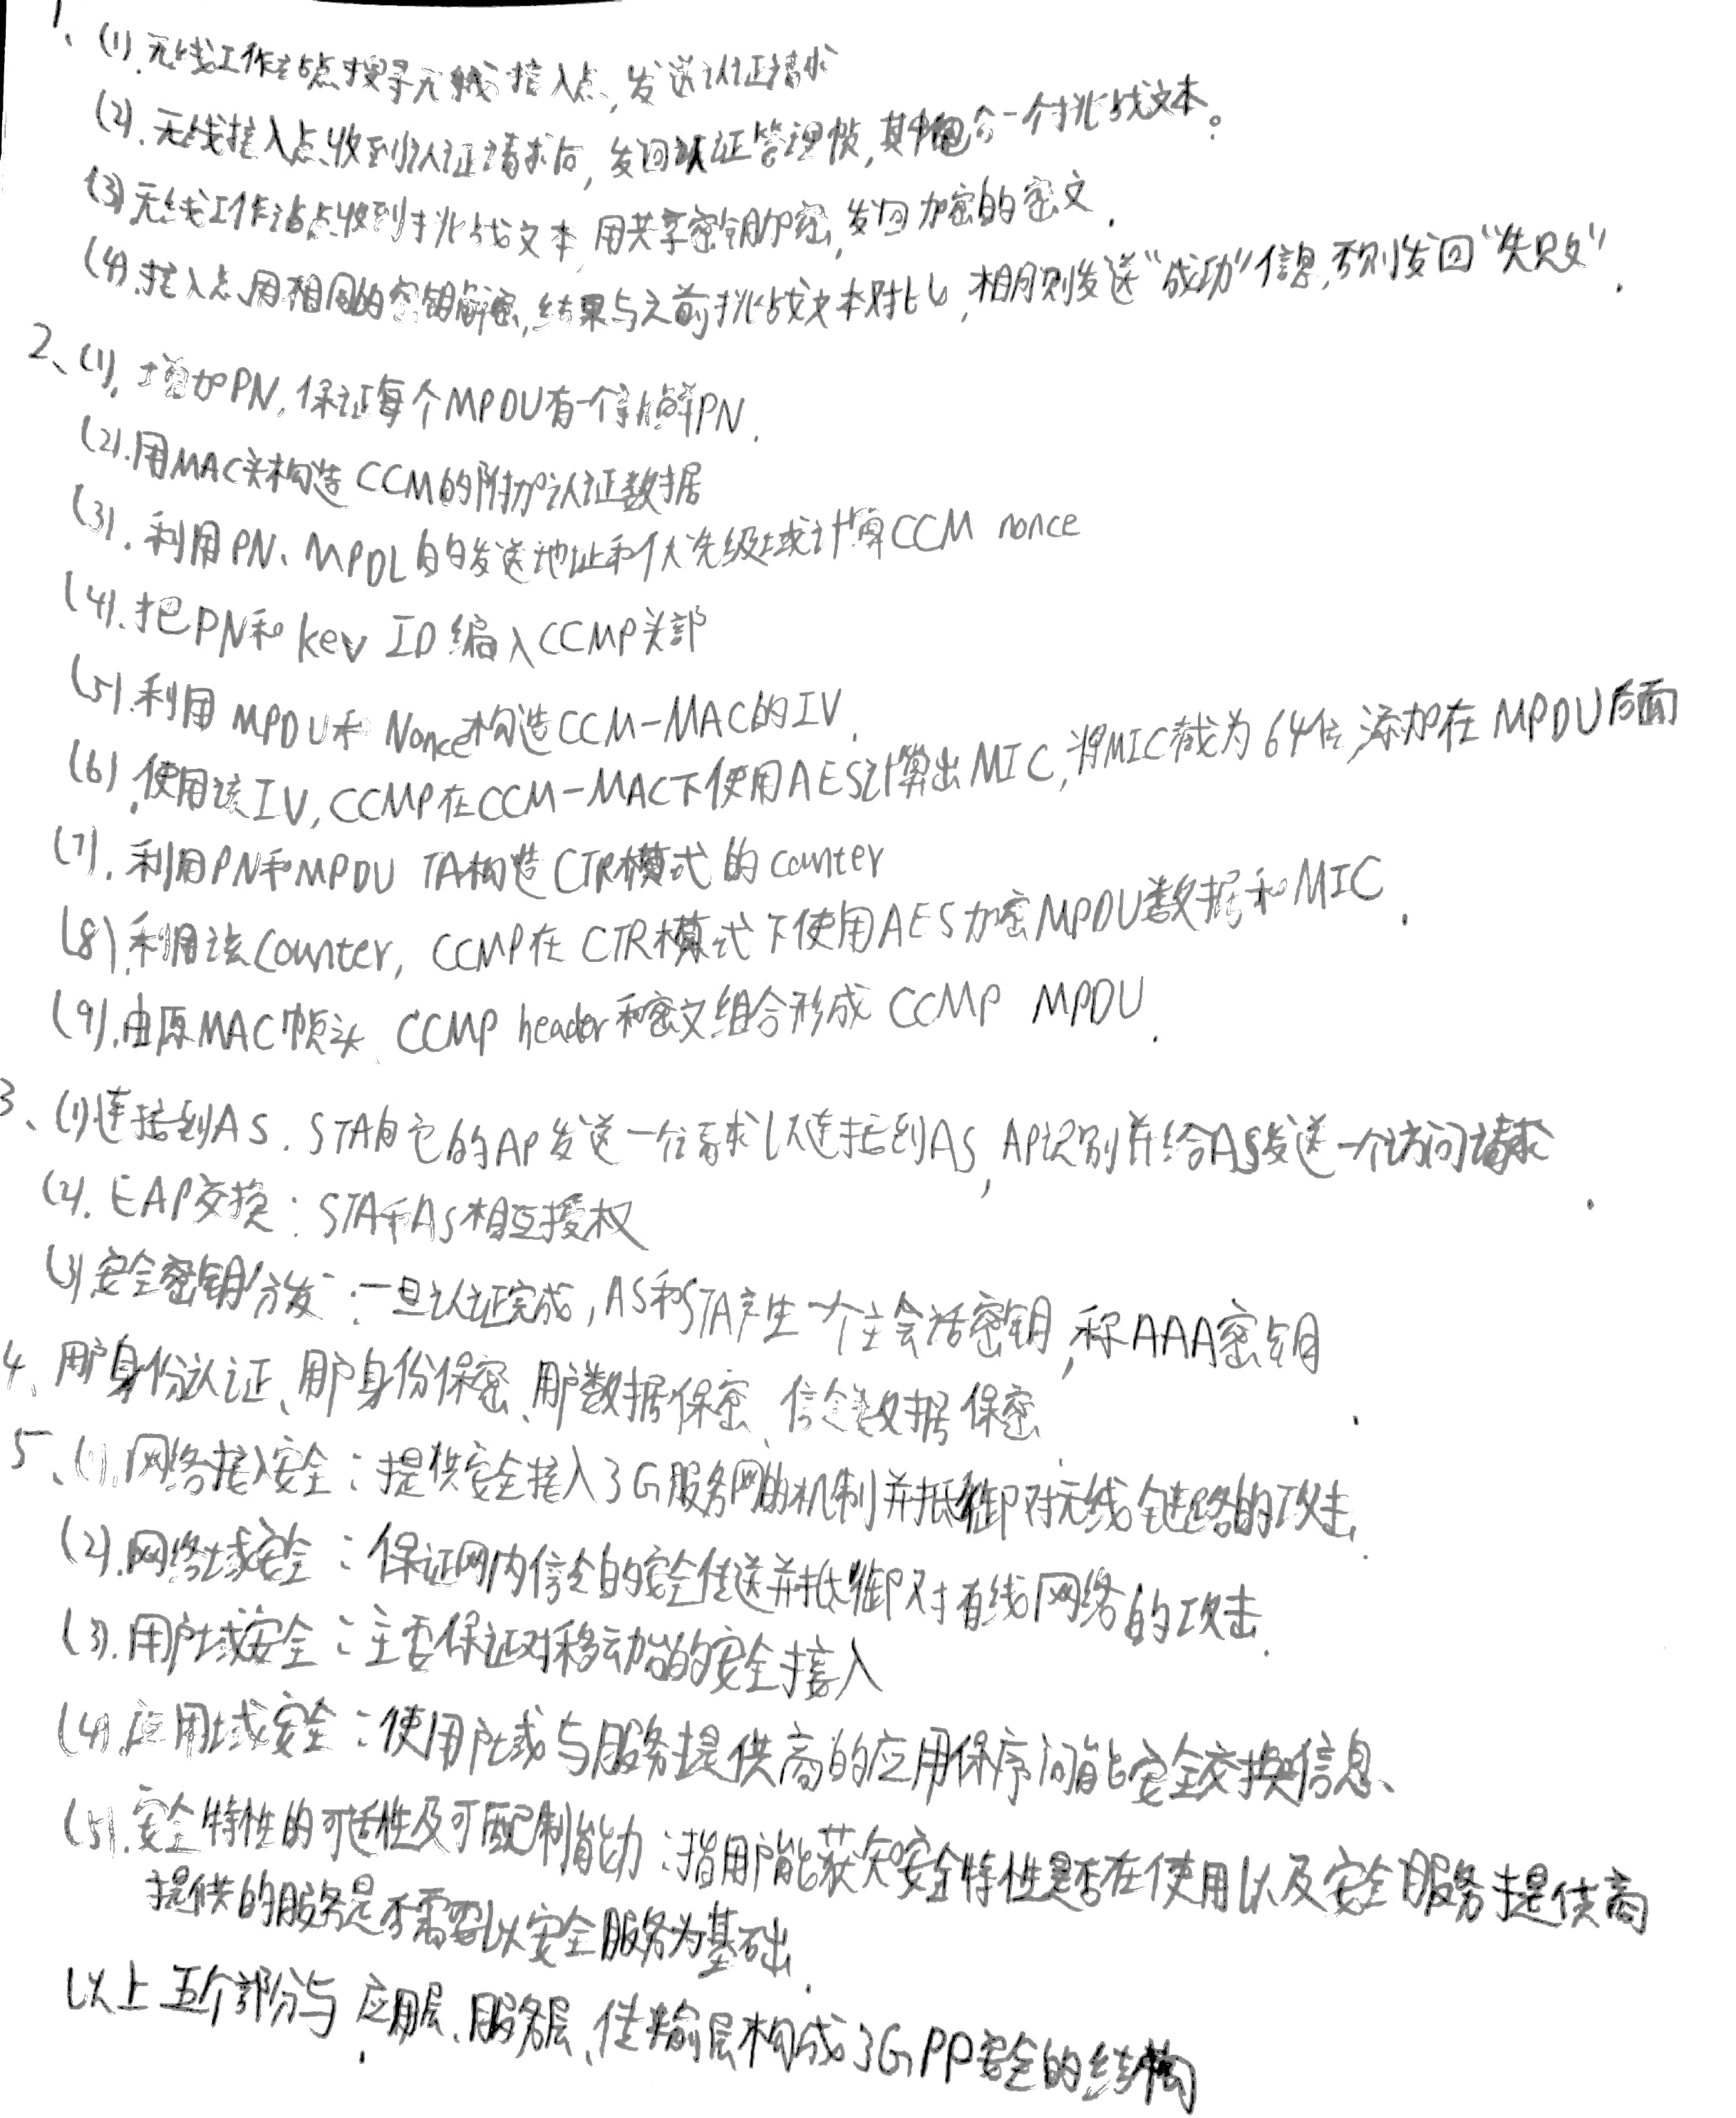 1、(1).无线工作站点搜寻无线接入点，发送认证请求
(2).无线接入点收到认证请求后，发回认证管理帧，其中包含一个挑战文本。
(3)无线工作站点收到挑战文本,用共享密钥加密,发回加密的密文.
(4).接入点用相同的密钥解密,结果与之前挑战文本对比,相同则发送"成功"信息,否则发回"失败".
2、(1).增加PN,保证每个MPDU有一个新鲜PN.
(2).用MAC头构造CCM的附加认证数据
(3).利用PN、MPDU的发送地址和优先级域计算CCM nonce
(4).把PN和key ID编入CCMP头部
(5).利用MPDU和Nonce构造CCM-MAC的IV.
(6).使用该IV,CCMP在CCM-MAC下使用AES计算出MIC,将MIC截为64位,添加在MPDU后面
(7).利用PN和MPDU TA构造CTR模式的counter
(8).利用该Counter, CCMP在CTR模式下使用AES加密MPDU数据和MIC.
(9).由原MAC帧头、CCMP header和密文组合形成CCMP MPDU.
3、(1)连接到AS.STA向它的AP发送一个请求以连接到AS,AP识别并给AS发送一个访问请求.
(2).EAP交换:STA和AS相互授权
(3)安全密钥分发:一旦认证完成,AS和STA产生一个主会话密钥,称AAA密钥.
4、用户身份认证、用户身份保密、用户数据保密、信令数据保密
5、(1).网络接入安全:提供安全接入3G服务网的机制并抵御对无线链路的攻击.
(2).网络域安全:保证网内信令的安全传送并抵御对有线网络的攻击.
(3).用户域安全:主要保证对移动台的安全接入
(4).应用域安全:使用户域与服务提供商的应用程序间能安全交换信息、
(5).安全特性的可活性及可配制能力:指用户能获知安全特性是否在使用以及安全服务提供商
提供的服务是否需要以安全服务为基础.
以上五个部分与应用层、服务层、传输层构成3GPP安全的结构.